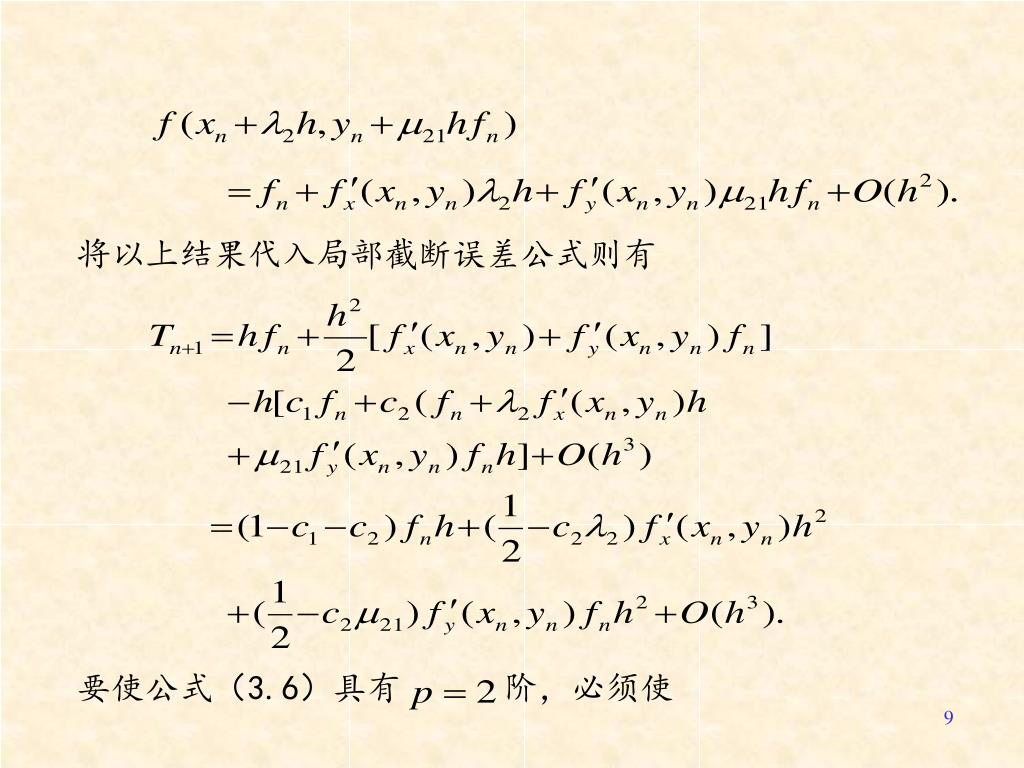 f(xₙ+λ₂h, yₙ+μ₂₁hfₙ)
=fₙ+f′ₓ(xₙ,yₙ)λ₂h+f′ᵧ(xₙ,yₙ)μ₂₁hfₙ+O(h²).
将以上结果代入局部截断误差公式则有
Tₙ₊₁=hfₙ+\frac{h²}{2}[f′ₓ(xₙ,yₙ)+f′ᵧ(xₙ,yₙ)fₙ]
−h[c₁fₙ+c₂(fₙ+λ₂f′ₓ(xₙ,yₙ)h
+μ₂₁f′ᵧ(xₙ,yₙ)fₙh]+O(h³)
=(1−c₁−c₂)fₙh+(\frac{1}{2}−c₂λ₂)f′ₓ(xₙ,yₙ)h²
+(\frac{1}{2}−c₂μ₂₁)f′ᵧ(xₙ,yₙ)fₙh²+O(h³).
要使公式（3.6）具有 p = 2 阶，必须使
9